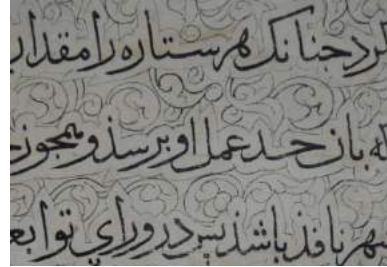 کرد جنانک هر ستاره را مقدار
که بان حد عمل او برسذ و همجون
مهر نافذ باشذ پس در ورای توابع